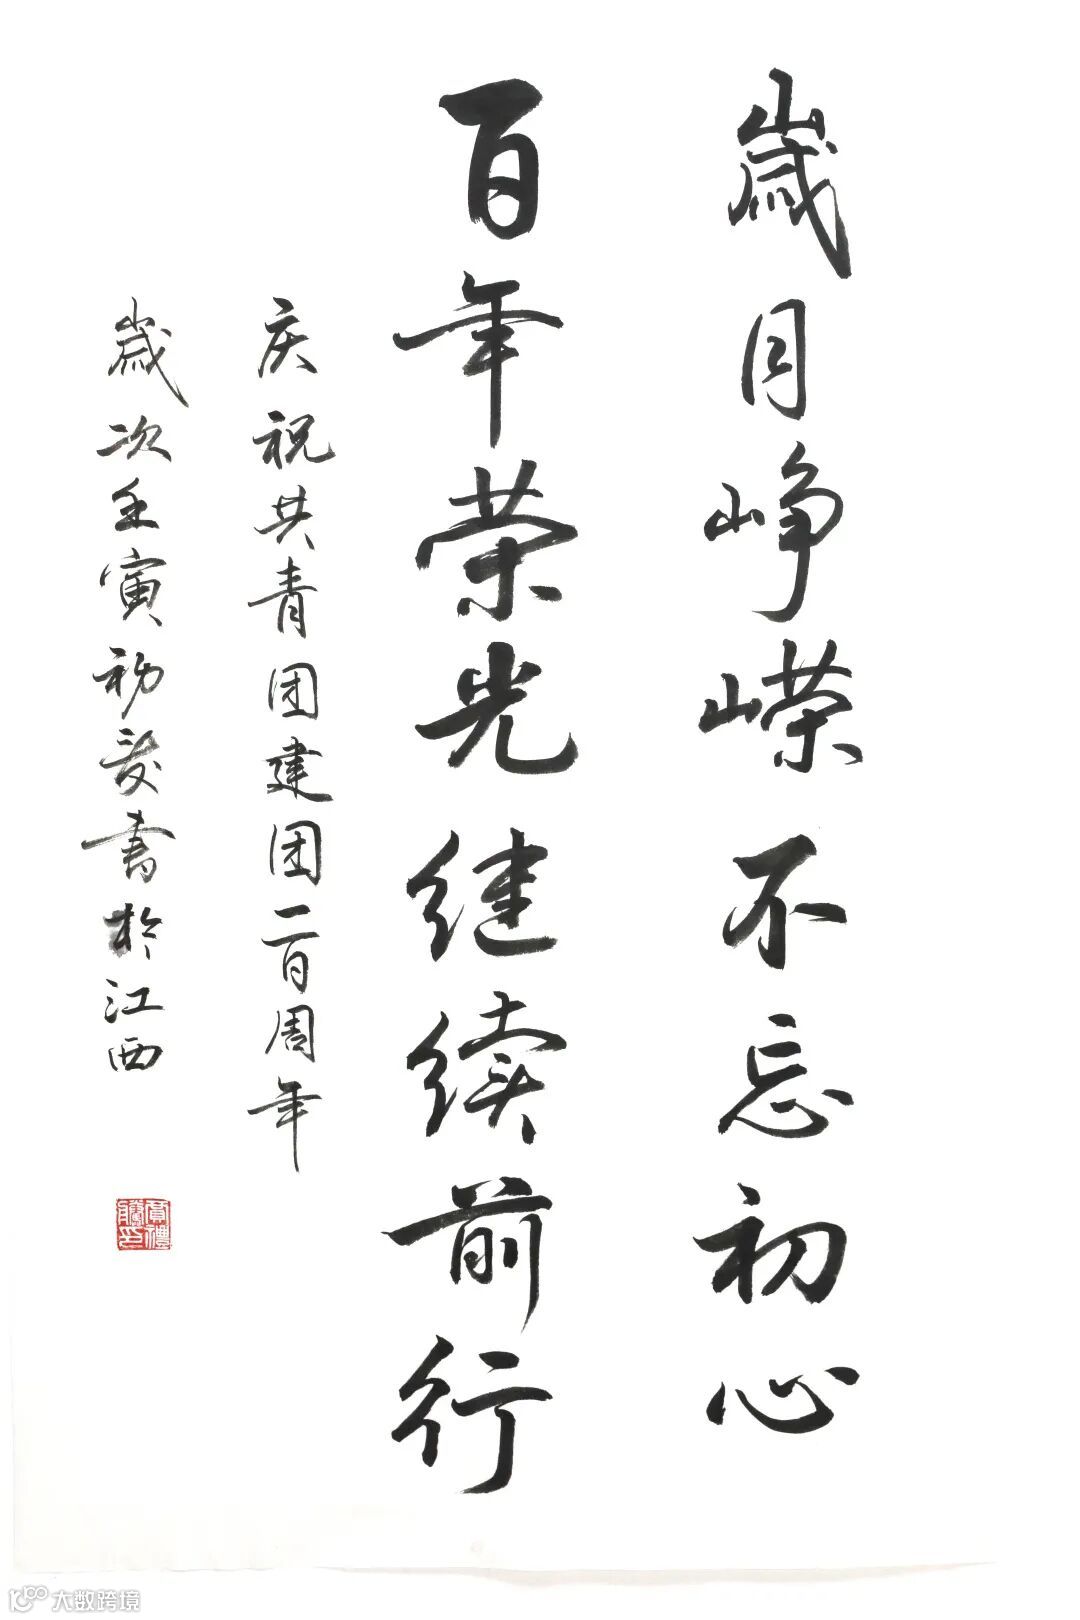 歲月峥嵘不忘初心
百年荣光继续前行
庆祝共青团建团一百周年
歲次壬寅初夏書於江西
大数跨境